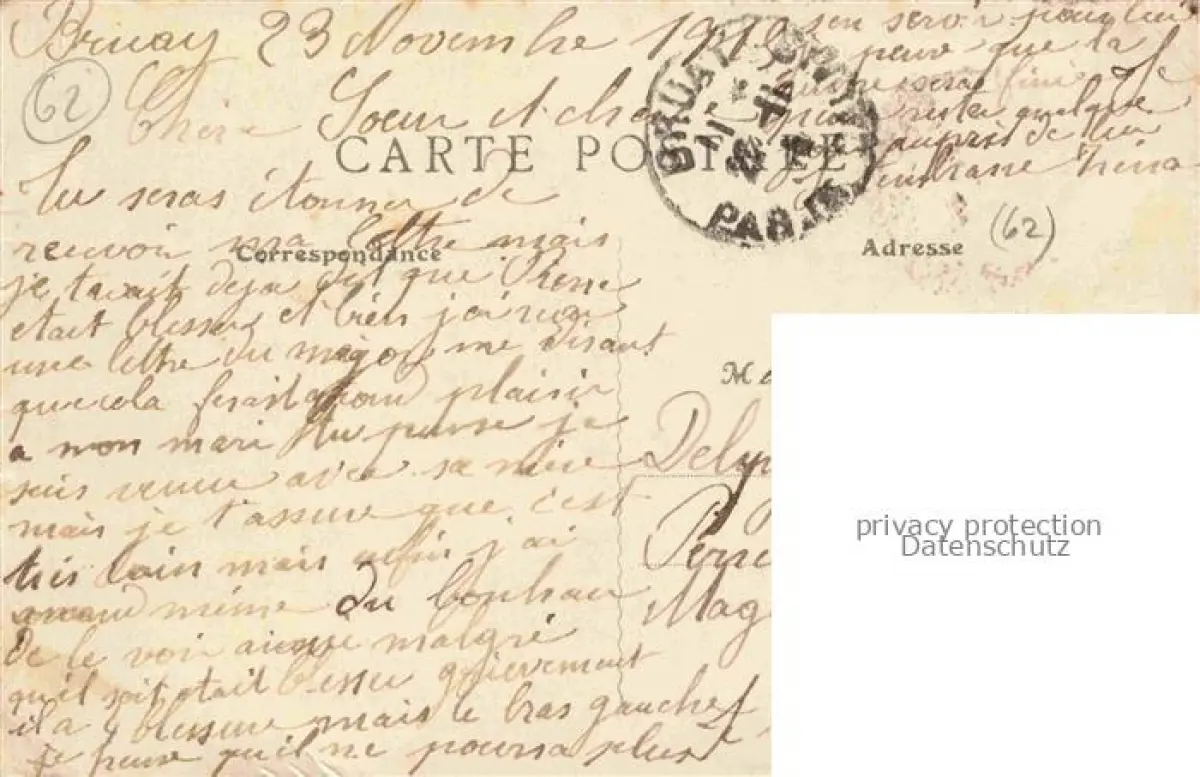 Bruay 23 Novembre 191
62
Chère Soeur et chère
CARTE POSTALE
tu seras étonner de
recevoir ma lettre mais
Correspondance
je tavait deja dit que Pierre
etait blesser et bien j'ai
une lettre du major me disant
que cela ferait grand plaisir
a mon mari tu pense je
suis venue avec sa mère
mais je t'assure que c'est
très loin mais enfin j'ai
quand même du bonheur
de le voir malgré
qu'il soit était blesser grievement
il a 4 blessure mais le bras gauche
je pense qu'il ne pourra plus
sen servir pour lui
peur que la
sera fini
rester quelque
auprès de lui
embrasse
BRUAY
PAS
Adresse
(62)
M
Pern
Mag
privacy protection
Datenschutz